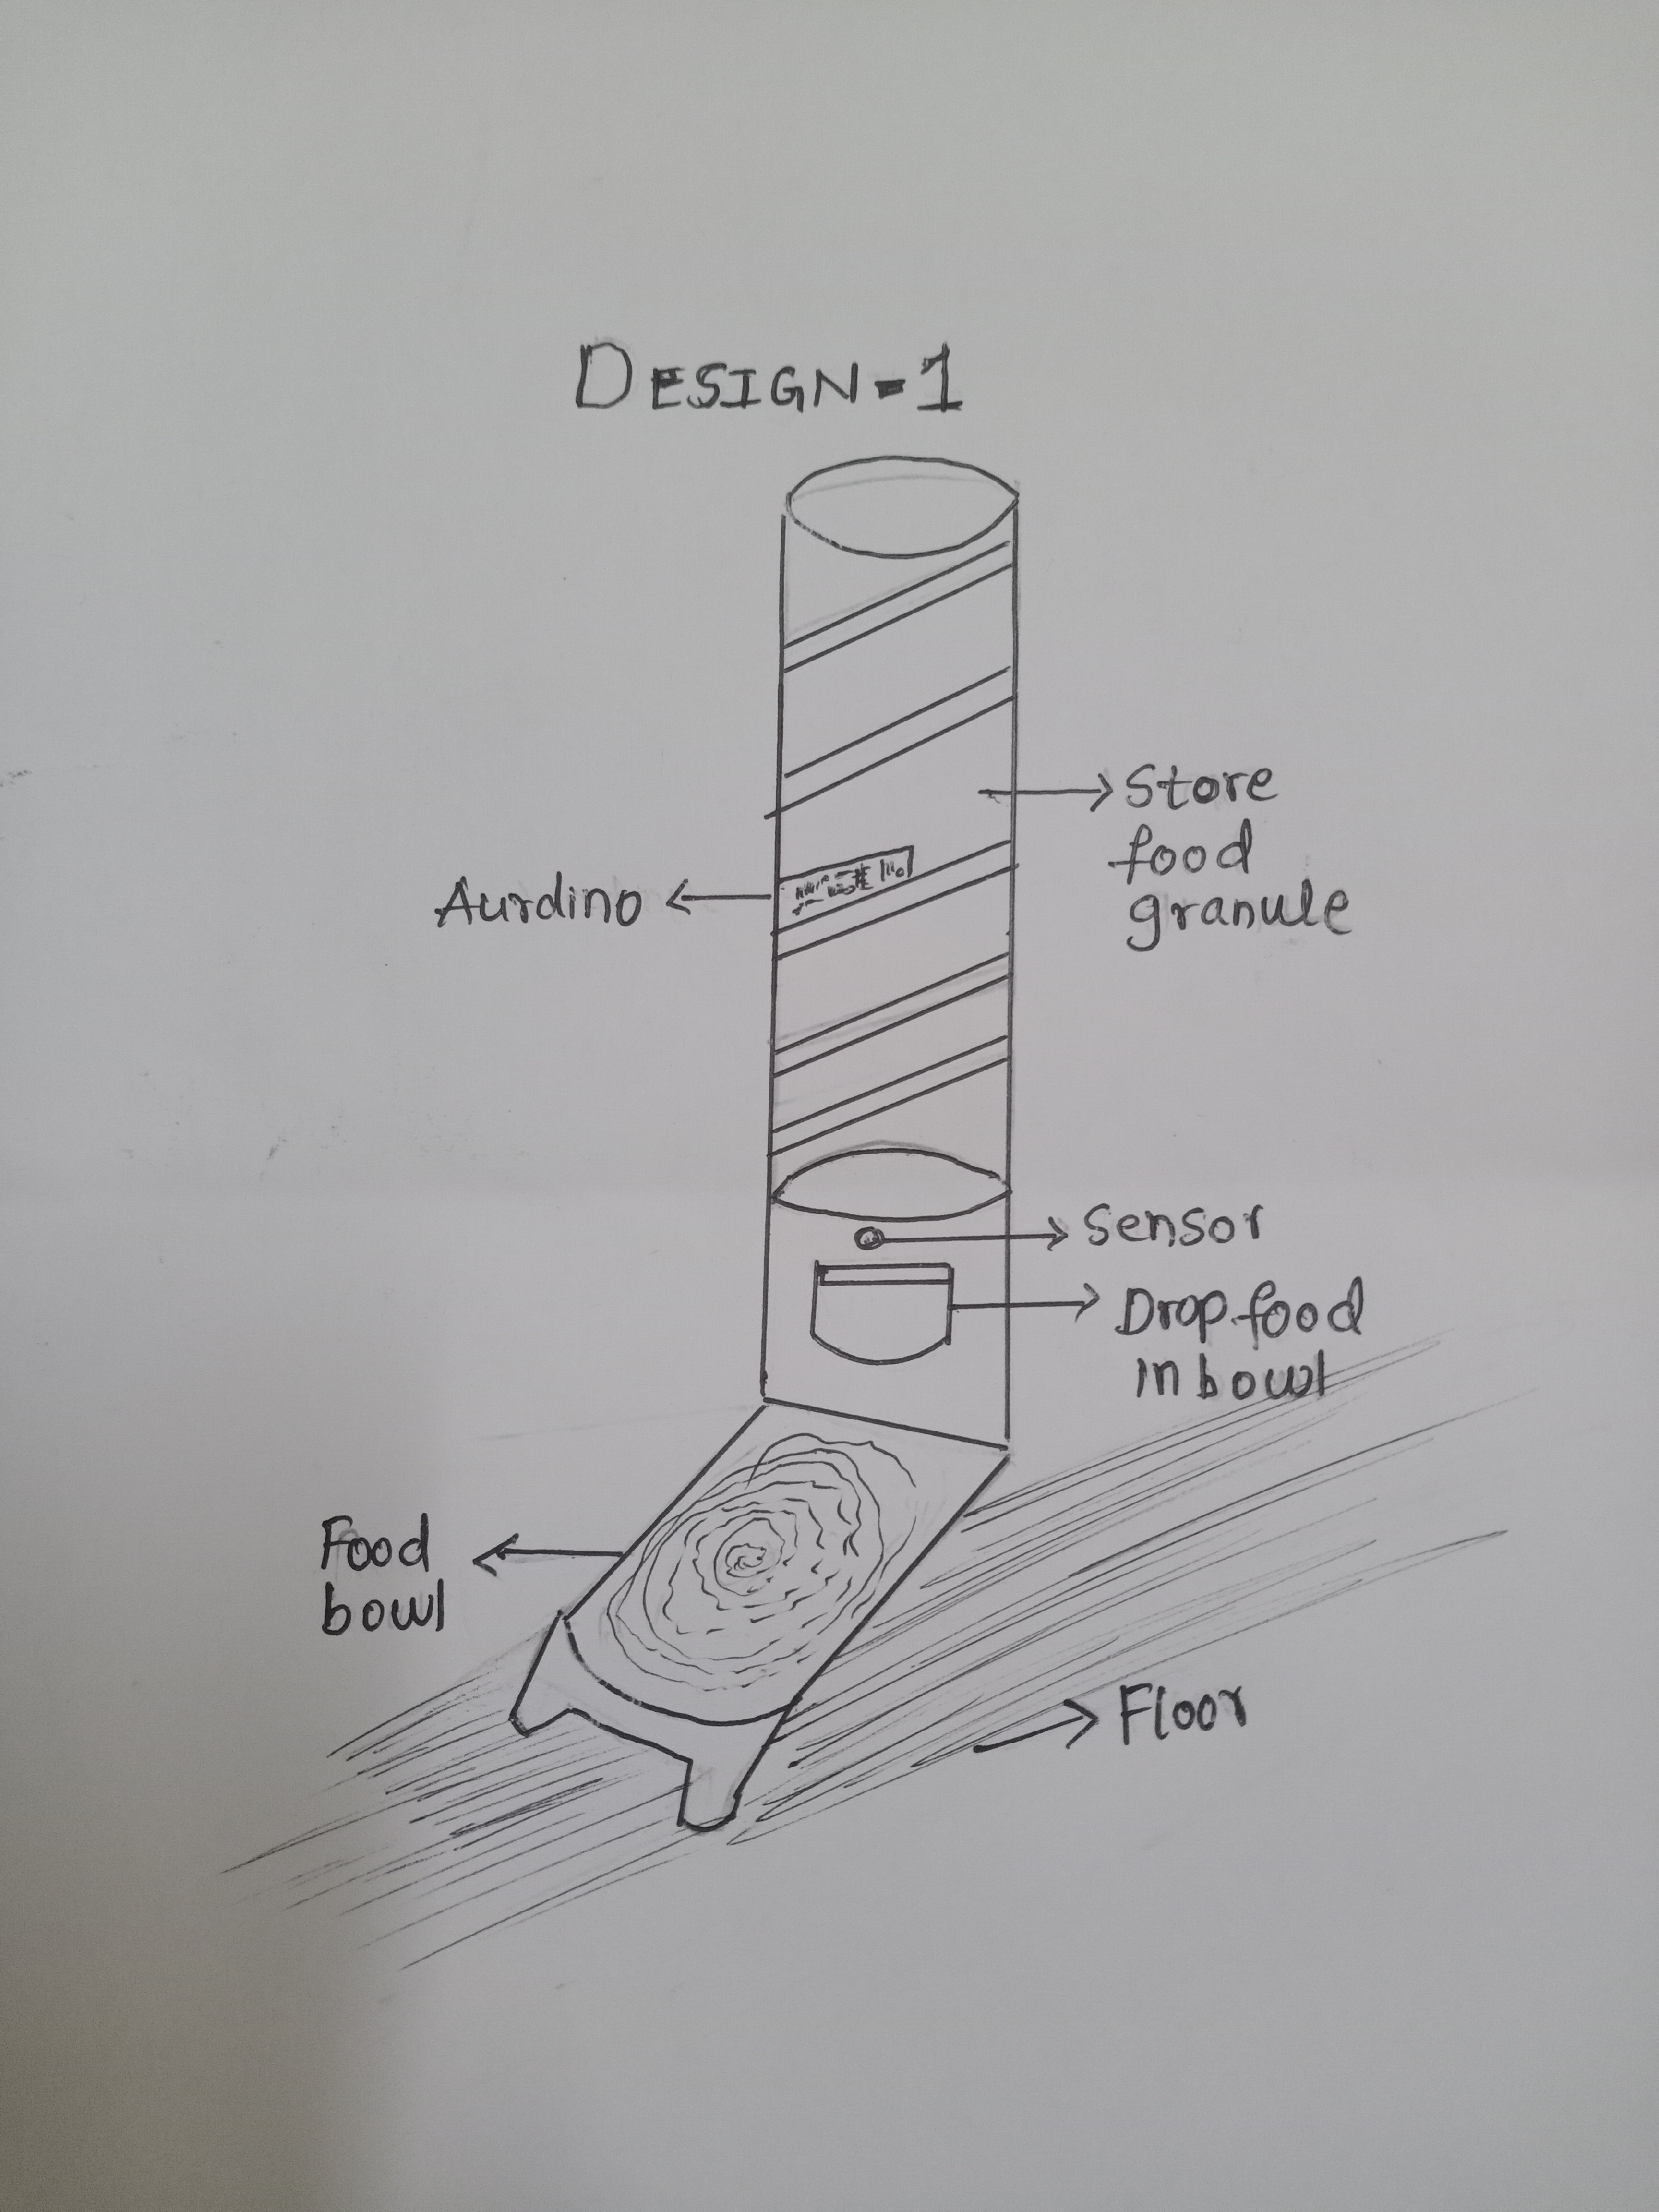 DESIGN-1
Store
food
granule
Aurdino
Sensor
Drop food
in bowl
Food
bowl
Floor